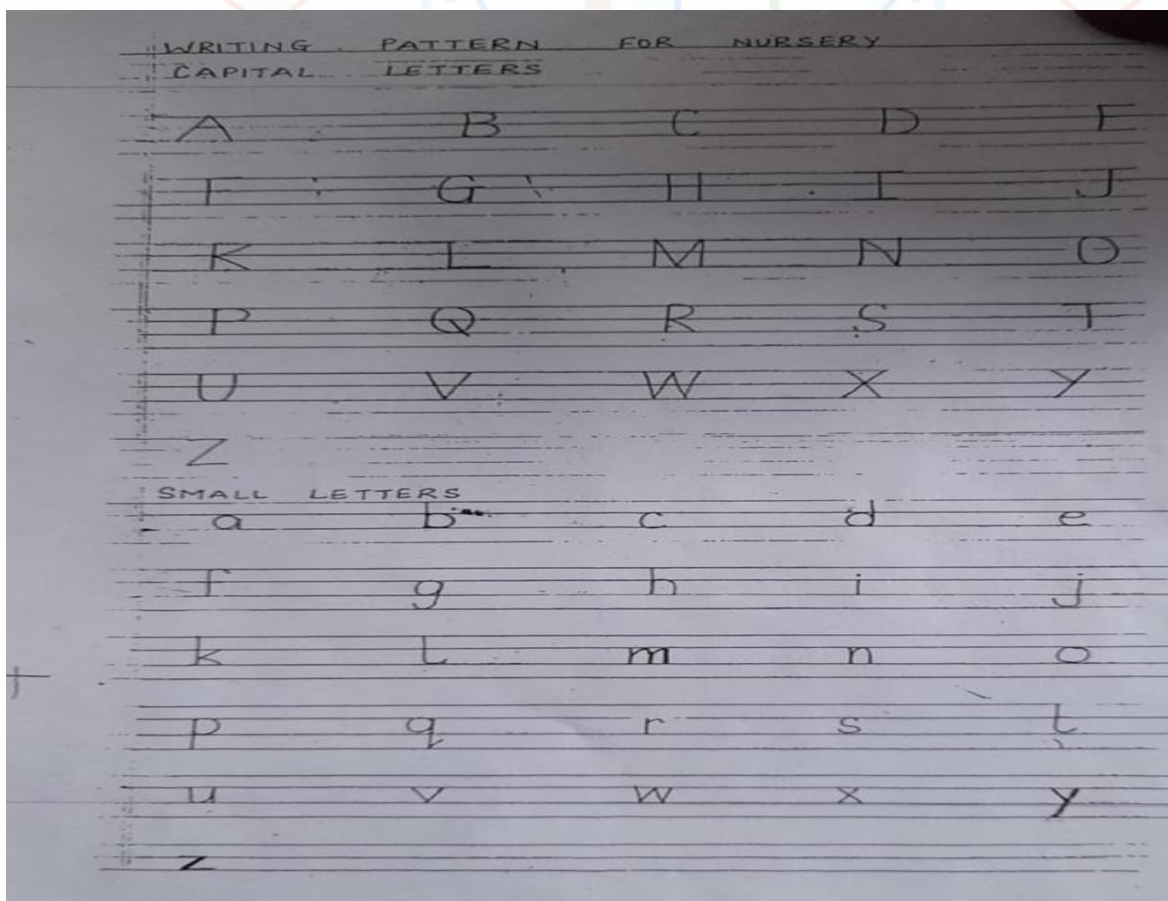 WRITING PATTERN FOR NURSERY
CAPITAL LETTERS
A B C D E
F G H I J
K L M N O
P Q R S T
U V W X Y
Z
SMALL LETTERS
a b c d e
f g h i j
k l m n o
p q r s t
u v w x y
z